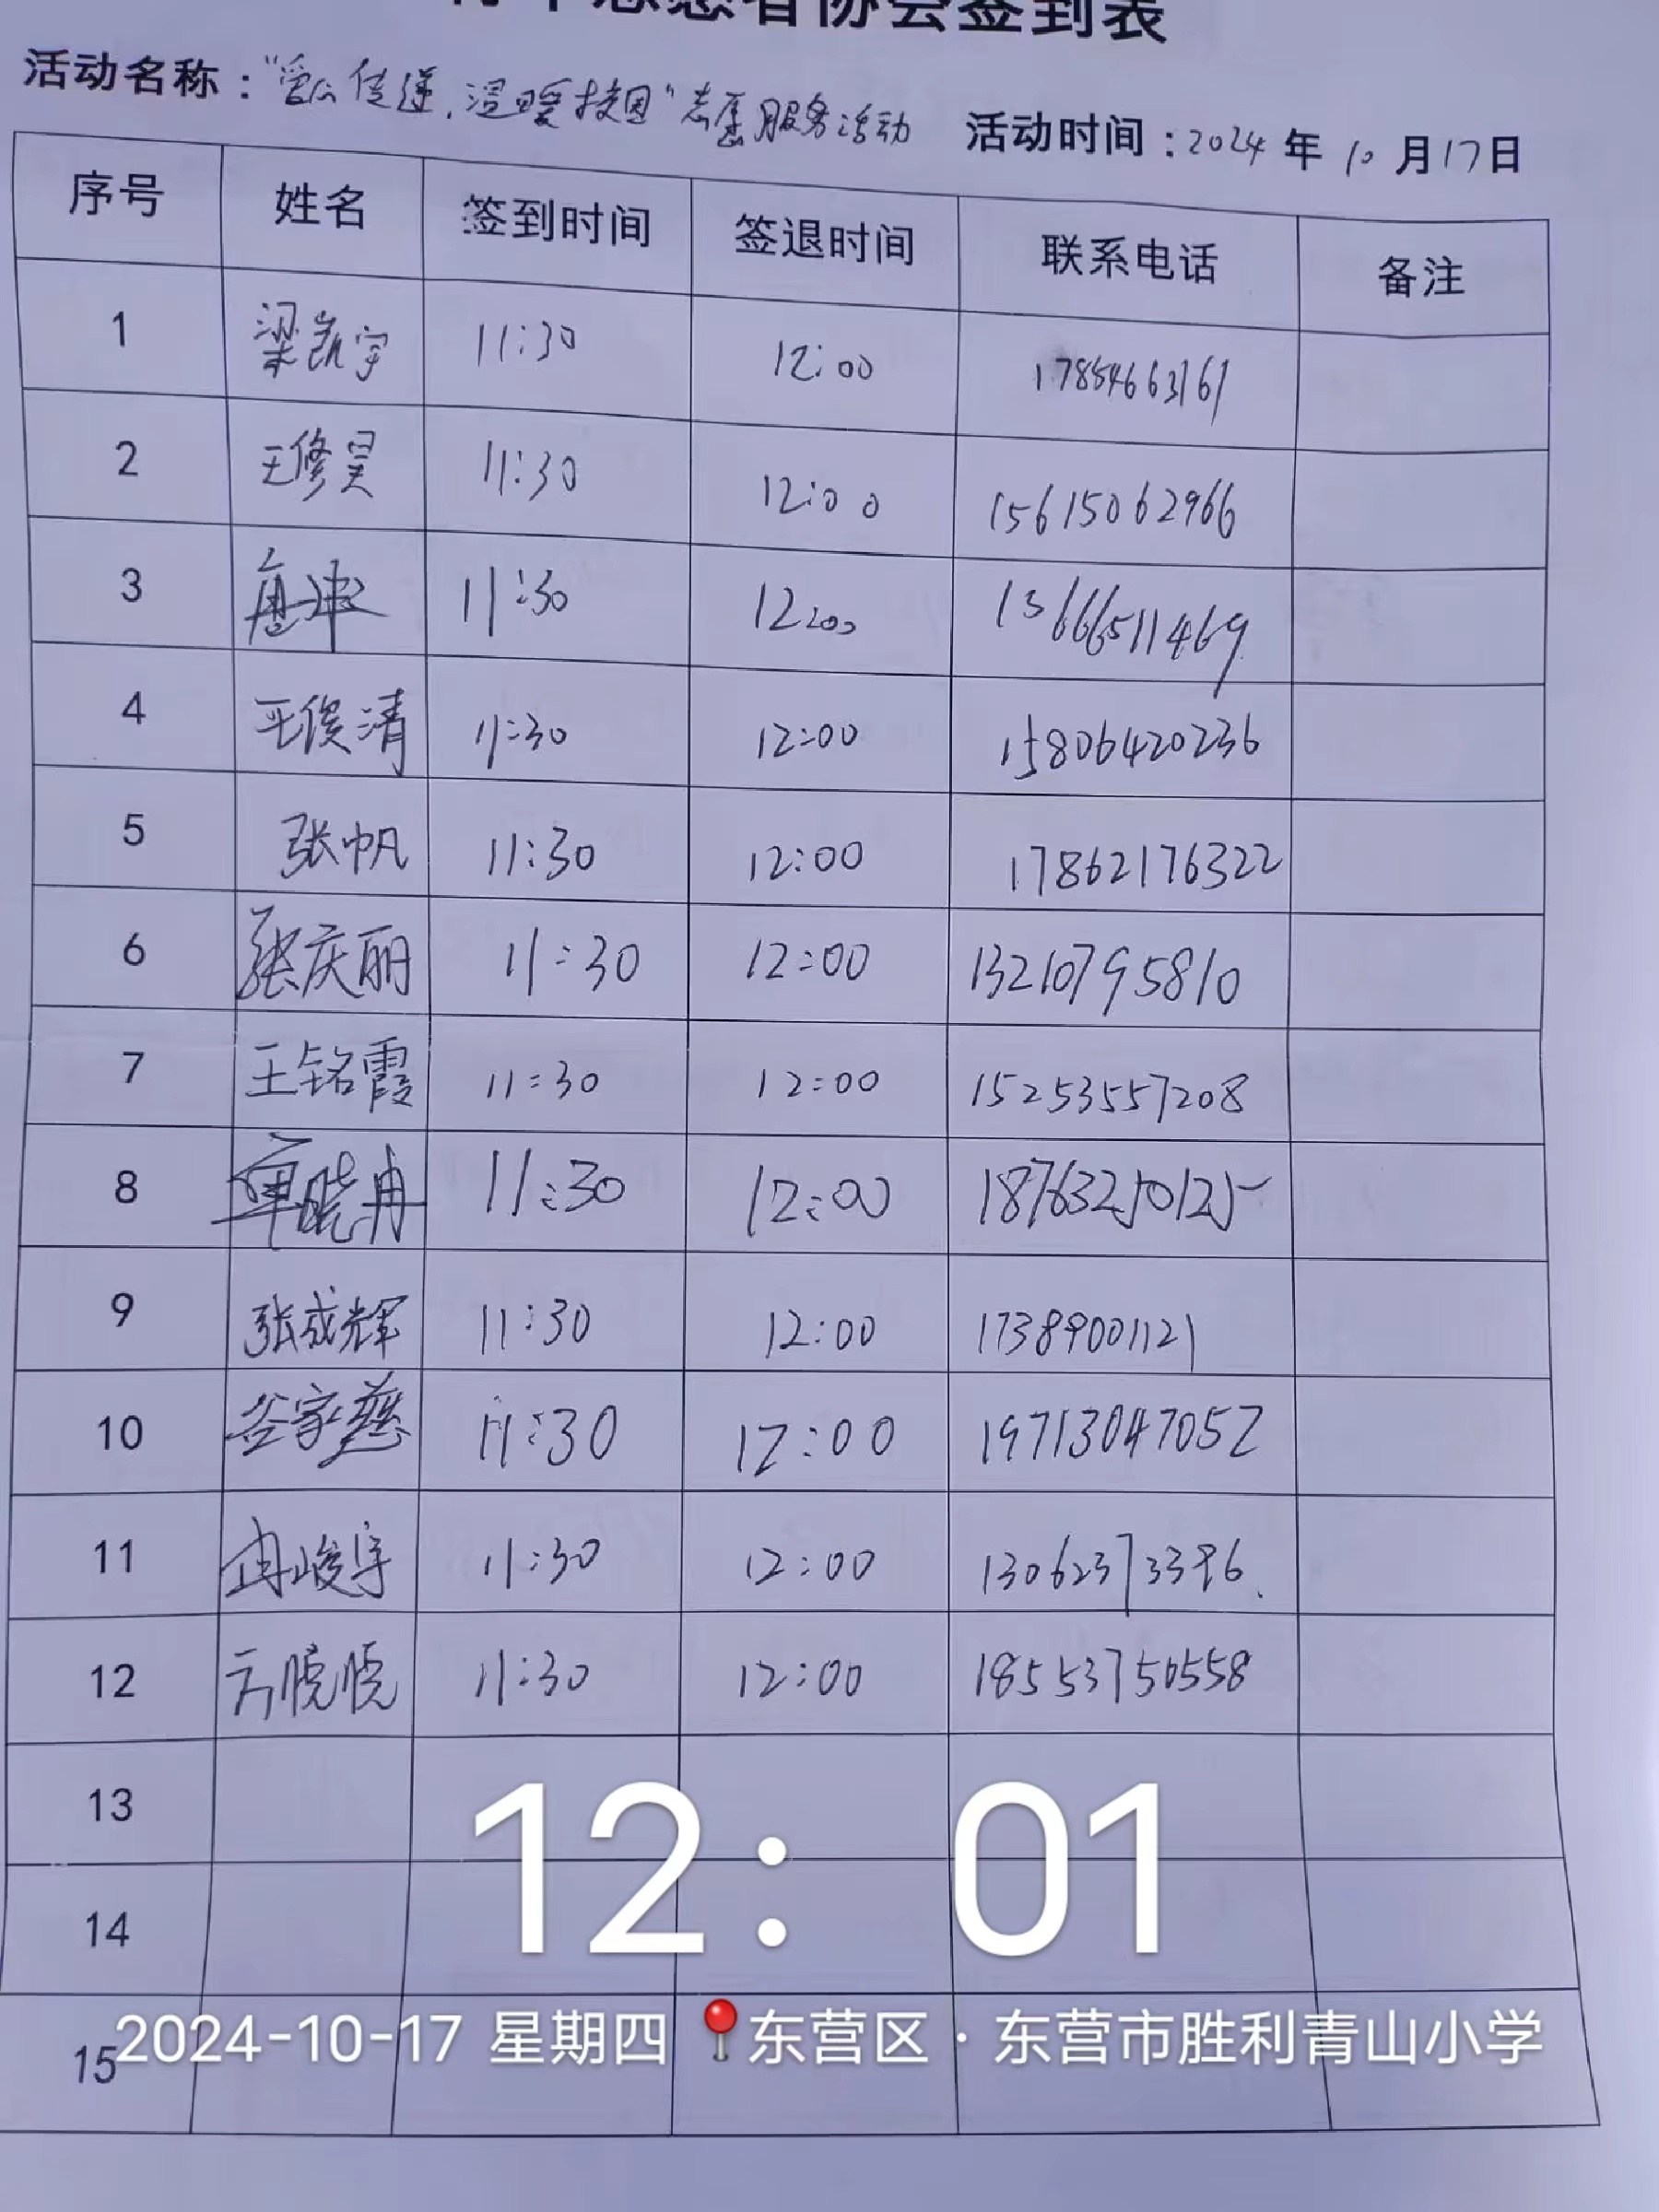 协会签到表
活动名称："爱心传递,温暖校园"志愿服务活动 活动时间:2024年10月17日
序号 姓名 签到时间 签退时间 联系电话 备注
1 梁凯宇 11:30 12:00 17854663161
2 王修昊 11:30 12:00 15615062966
3 11:30 12:00 13666511469
4 王俊清 11:30 12:00 15806420236
5 张帆 11:30 12:00 17862176322
6 张庆丽 11:30 12:00 13210795810
7 王铭霞 11:30 12:00 15253557208
8 覃晓冉 11:30 12:00 18763250125
9 张成辉 11:30 12:00 17389001121
10 谷家慈 11:30 12:00 19713047052
11 冉峻宇 11:30 12:00 13062373396.
12 方晓晓 11:30 12:00 18553750558
13
12: 01
14
2024-10-17 星期四 东营区·东营市胜利青山小学
15